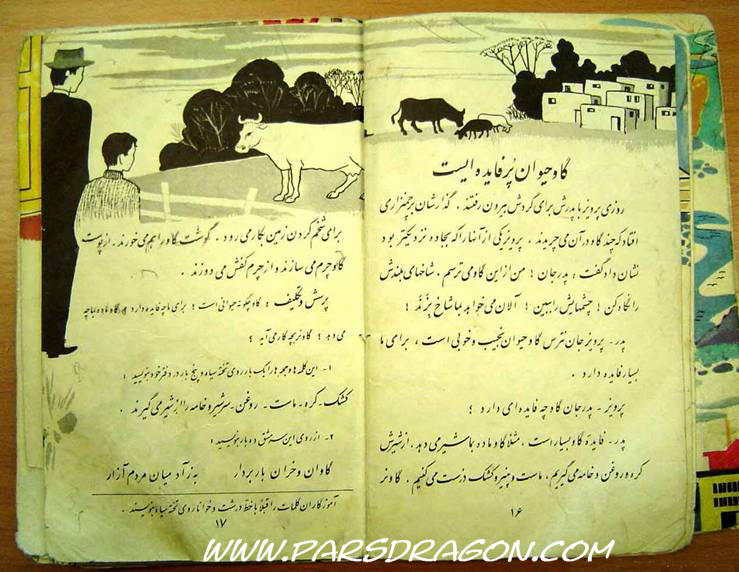 گاو حیوان پُر فایده ایست
روزی پرویز با پدرش برای گردش بیرون رفتند . گذرشان بچمنزاری
افتاد که چند گاو در آن می چریدند . پرویز یکی از آنها را که بجاده نزدیکتر بود
نشان داد گفت : پدر جان ! من از این گاو می ترسم ، شاخهای بلندش
را نگاه کن ! چشمهایش را ببین ! الآن می خواهد با شاخ بِزَنَدْ !
پدر - پرویز جان نترس گاو حیوان نجیب و خوبی است ، برای ما
بسیار فایده دارد .
پرویز - پدر جان گاو چه فایده ای دارد ؟
پدر - فایدهٔ گاو بسیار است ، مثلا گاو ماده بما شیر می دهد ، از شیرش
کره و روغن و خامه می گیریم ، ماست و پنیر و کشک درست می کنیم . گاو نر
۱۶
برای شخم کردن زمین بکار می رود . گوشت گاو را هم می خورند . از پوست
گاو چرم می سازند و از چرم کفش می دوزند .
پرسش و تکلیف : گاو چگونه حیوانی است ؟ برای ما چه فایده دارد ؟ گاو ماده بما چه
می دهد ؟ گاو نر بچه کار می آید ؟
۱ - این کلمه ها و جمله ها را یک بار روی تختهٔ سیاه و پنج بار در دفتر خود بنویسید :
کشک - کره - ماست - روغن - سرشیر و خامه را از شیر می گیرند .
۲ - از روی این سرمشق ده بار بنویسید :
گاوان و خران بار بردار به ز آدمیان مردم آزار
آموزگاران کلمات را قبلاً با خط درشت و خوانا روی تختهٔ سیاه بنویسند .
۱۷
WWW.PARSDRAGON.COM